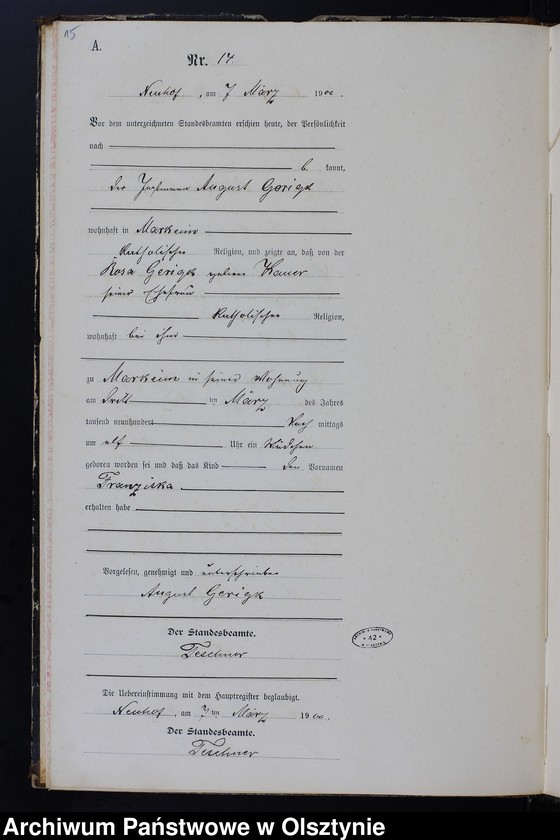 15
A.
Nr. 14.
Neuhof, am 7 März 1900.
Vor dem unterzeichneten Standesbeamten erschien heute, der Persönlichkeit
nach
be kannt,
der August Gerigk
wohnhaft in Markeim
Katholischer Religion, und zeigte an, daß von der
Rosa Gerigk geborne
seiner Ehefrau
Katholischer Religion,
wohnhaft bei ihm
zu Markeim in seiner Wohnung
am dritt ten März des Jahres
tausend neunhundert Nach mittags
um elf Uhr ein Mädchen
geboren worden sei und daß das Kind den Vornamen
Franziska
erhalten habe
Vorgelesen, genehmigt und unterschrieben
August Gerigk
Der Standesbeamte.
Teschner
Die Uebereinstimmung mit dem Hauptregister beglaubigt.
Neuhof, am 7 ten März 1900.
Der Standesbeamte.
Teschner
12
Archiwum Państwowe w Olsztynie